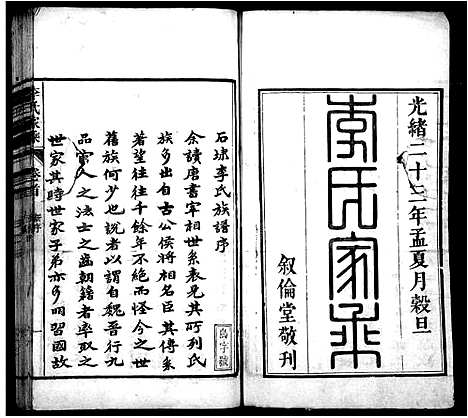 光緒二十三年孟夏月穀旦
李氏家乘
叙倫堂敬刊
石埭李氏族譜序
余讀唐書宰相世系表見其所列氏
族多出自古公侯將相名臣其傳系
若望往往千餘年不絶而怪今之世
舊族何少也説者以謂自魏晉行九
品官人之法士之齒朝籍者率取之
世家其時世家子弟亦多明習國故
李氏家乘
卷首